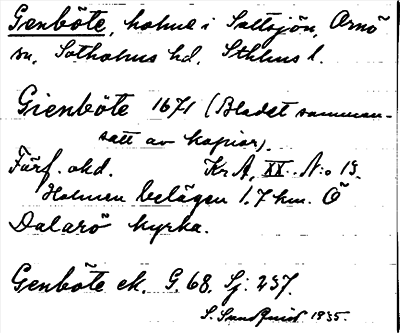 Genböte, holme i Saltsjön, Ornö
sn, Sotholms hd, Sthlms l.
Gienböte 1671 (Bladet samman-
satt av kopior).
Förf. okd. Kr.A. XX. N:o 13.
Holmen belägen 1.7 km. Ö
Dalarö kyrka.
Genböte ek. G. 68. Sj: 237.
S. Sundquist 1935.